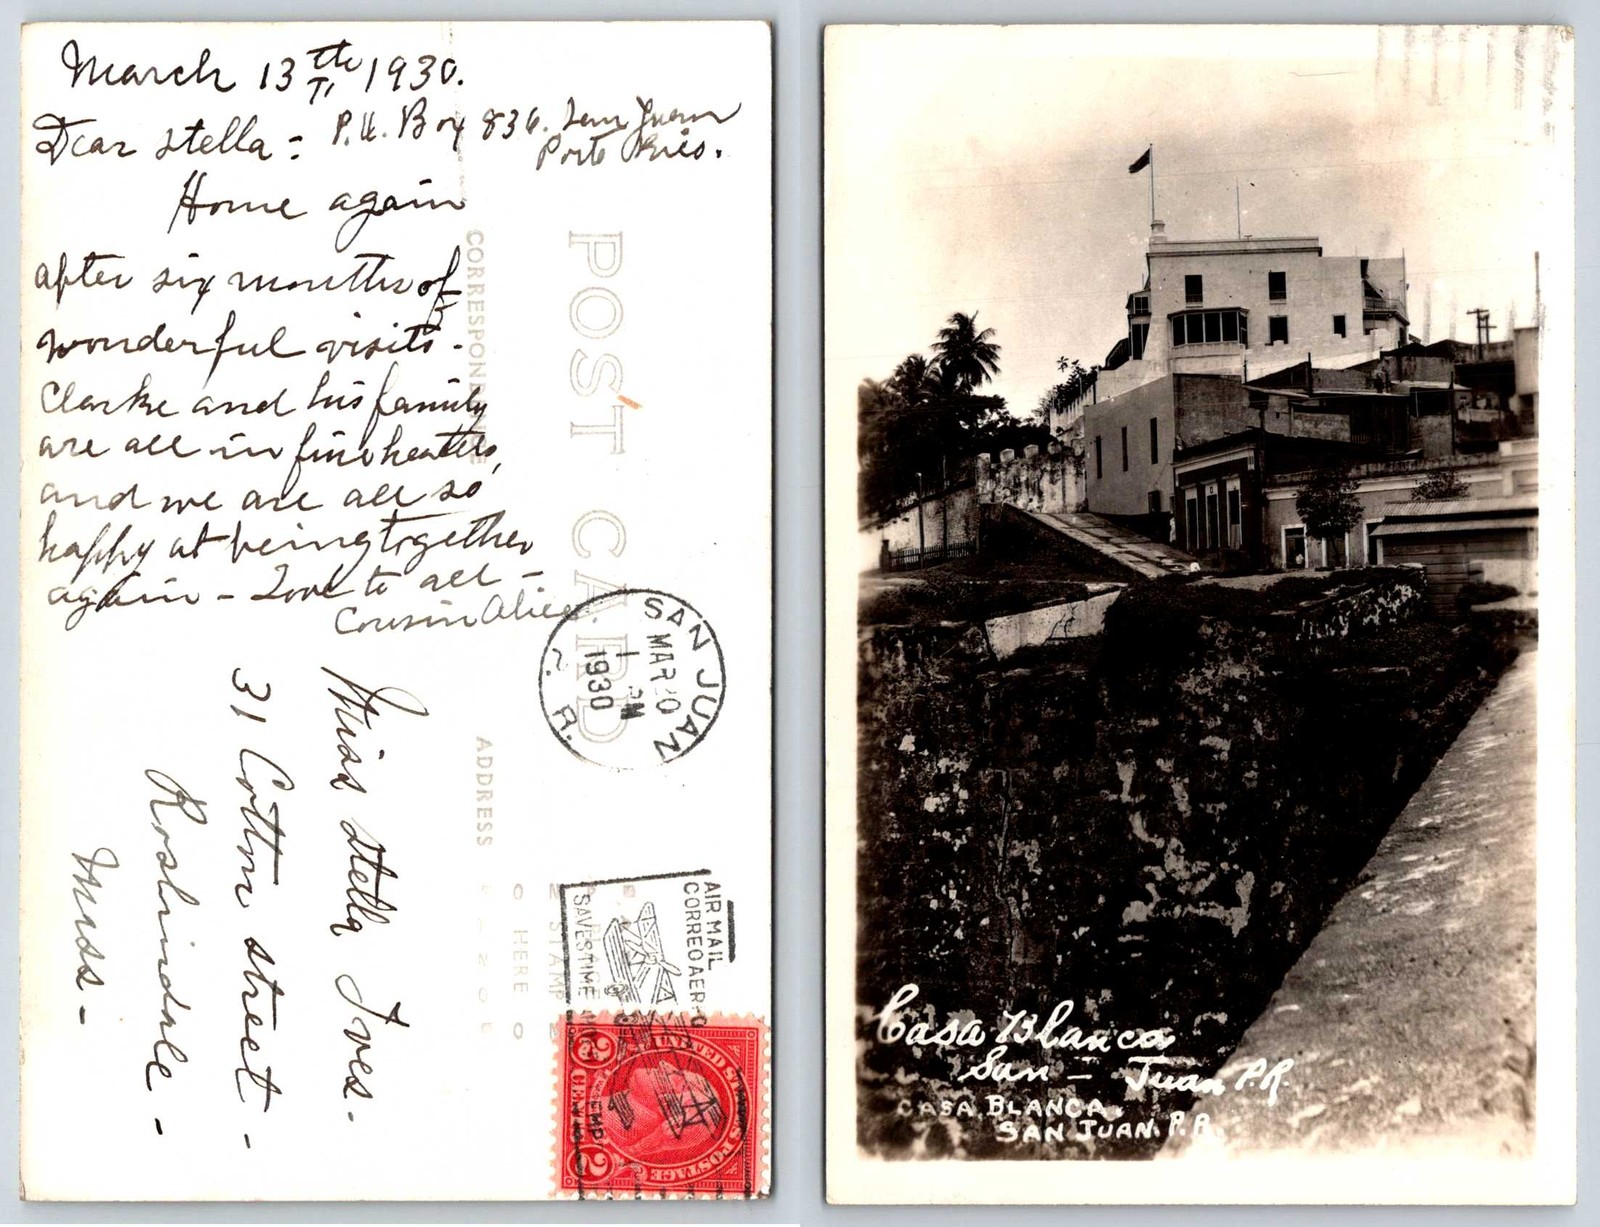 March 13th 1930.
Dear Stella - P.O. Box 836. San Juan
Porto Rico.
Home again
after six months of
wonderful visits.
Clarke and his family
are all in fine health,
and we are all so
happy at being together
again - Love to all -
Cousin Alice
CORRESPONDENCE
POST CARD
SAN JUAN
MAR 20
1 PM
1930
P. R.
Miss Stella Ives.
31 Cotton Street -
Roslindale -
Mass -
ADDRESS
STAMP
HERE
AIR MAIL
CORREO AEREO
SAVES TIME
UNITED STATES POSTAGE
2 CENTS 2
Casa Blanca
San - Juan P.R.
CASA BLANCA.
SAN JUAN. P.R.